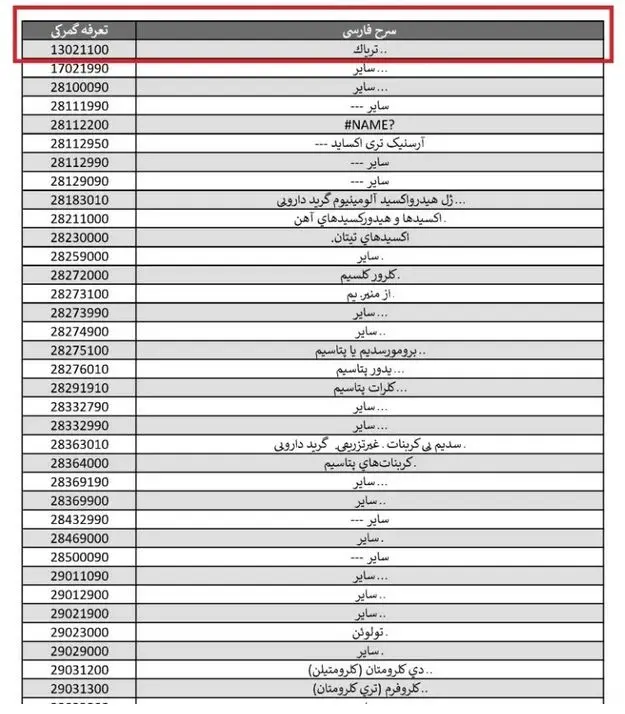 شرح فارسی تعرفه گمرکی
..ترياك 13021100
...ساير 17021990
...ساير 28100090
ساير --- 28111990
#NAME? 28112200
آرسنیک تری اکساید --- 28112950
ساير --- 28112990
ساير --- 28129090
...ژل هیدرواکسید آلومینیوم گرید دارویی 28183010
.اكسيدها و هيدوركسيدهاي آهن 28211000
اكسيدهاي تيتان. 28230000
.ساير 28259000
.كلرور كلسيم 28272000
.از منيزيم 28273100
...ساير 28273990
..ساير 28274900
..برومورسديم يا پتاسيم 28275100
...يدور پتاسيم 28276010
...كلرات پتاسيم 28291910
...ساير 28332790
...ساير 28332990
.سديم بی کربنات .غیرتزریقی. گرید دارویی 28363010
.كربنات‌هاي پتاسيم 28364000
...ساير 28369190
..ساير 28369900
ساير --- 28432990
.ساير 28469000
ساير --- 28500090
...ساير 29011090
..ساير 29012900
..ساير 29021900
.تولوئن 29023000
.ساير 29029000
..دي كلرومتان (كلرومتيلن) 29031200
..كلروفرم (تري كلرومتان) 29031300